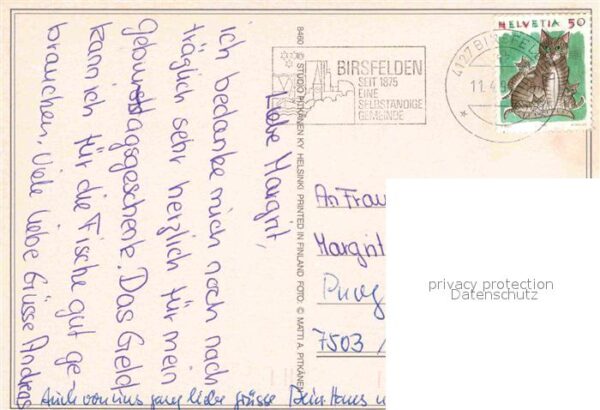 Liebe Margrit,
ich bedanke mich noch nach
träglich sehr herzlich für mein
Geburtstagsgeschenk. Das Geld
kann ich für die Fische gut ge
brauchen. Viele liebe Grüsse Andreas
Auch von uns ganz liebe Grüsse Dein Hans
8460 © STUDIO PITKÄNEN KY HELSINKI PRINTED IN FINLAND FOTO: © MATTI A. PITKÄNEN
BIRSFELDEN
SEIT 1875
EINE
SELBSTÄNDIGE
GEMEINDE
4127 BIRSFELDEN
11.4.9
HELVETIA 50
An Frau
Margrit
7503 /
privacy protection
Datenschutz